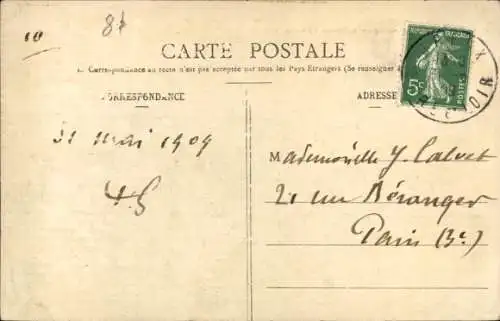 10
8
CARTE POSTALE
Correspondance au recto n'est pas acceptée par tous les Pays Etrangers (Se renseigner
CORRESPONDANCE
ADRESSE
5c
POSTES
LOIR
31 mai 1909
Mademoiselle J. Calvet
21 rue Béranger
Paris (3e)